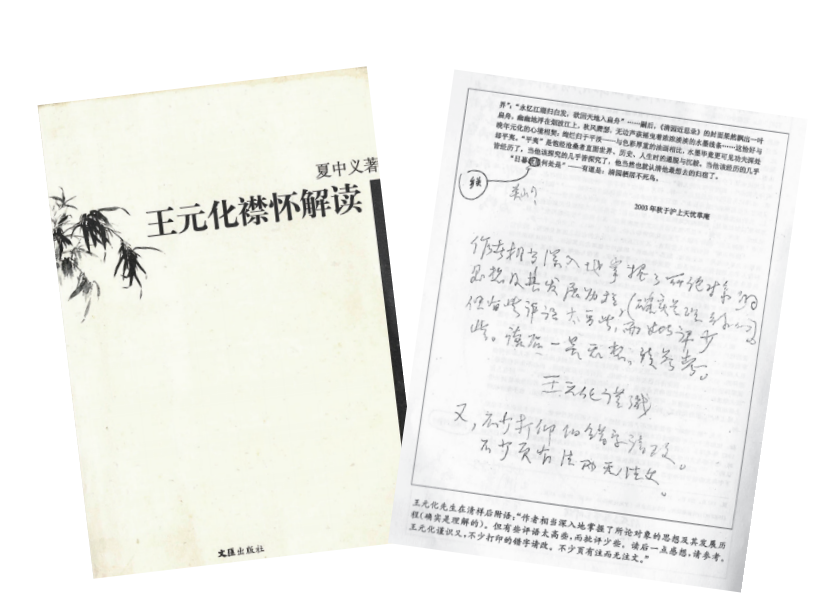 夏中义著
王元化襟怀解读
文匯出版社
界”:“永忆江湖归白发,欲回天地入扁舟”……嗣后,《清园近思录》的封面果然飘出一叶
扁舟,幽幽地浮在烟波江上,秋风萧瑟,无边芦荻
晚年元化的心境相契:绚烂归于平淡——与色彩厚重的油画相比,水墨毕竟更可见功夫深处
却平夷。“平夷”是饱经沧桑者直面世界、历史、人生时的通脱与沉毅,当他该经历的几乎
皆经历了,当他该探究的几乎皆探究了,他当然也就认清他最想去的归宿了。
“日暮何处是”——有道是:清园栖宿不死鸟。
2003年秋于沪上天忧草庵
作者相当深入地掌握了所论对象的
思想及其发展历程(确实是理解的)。
但有些评语太高些,而批评少
些。读后一点感想,请参考。
王元化谨识
又,不少打印的错字请改。
不少页有注而无注文。
王元化先生在清样后附语:“作者相当深入地掌握了所论对象的思想及其发展历
程(确实是理解的)。但有些评语太高些,而批评少些。读后一点感想,请参考。
王元化谨识又,不少打印的错字请改。不少页有注而无注文。”